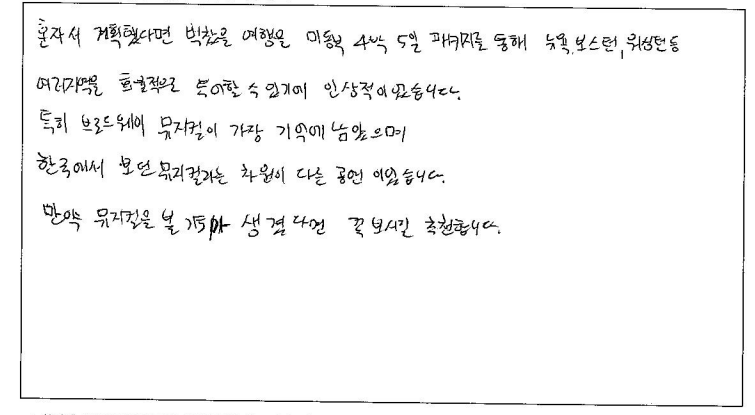 혼자서 계획했다면 벅찼을 여행을 미동부 4박 5일 패키지를 통해 뉴욕, 보스턴, 워싱턴 등
여러지역을 효율적으로 투어할 수 있기에 인상적이었습니다.
특히 브로드웨이 뮤지컬이 가장 기억에 남았으며
한국에서 보던 뮤지컬과는 차원이 다른 공연이었습니다.
만약 뮤지컬을 볼 기회가 생겼다면 꼭 보시길 추천합니다.